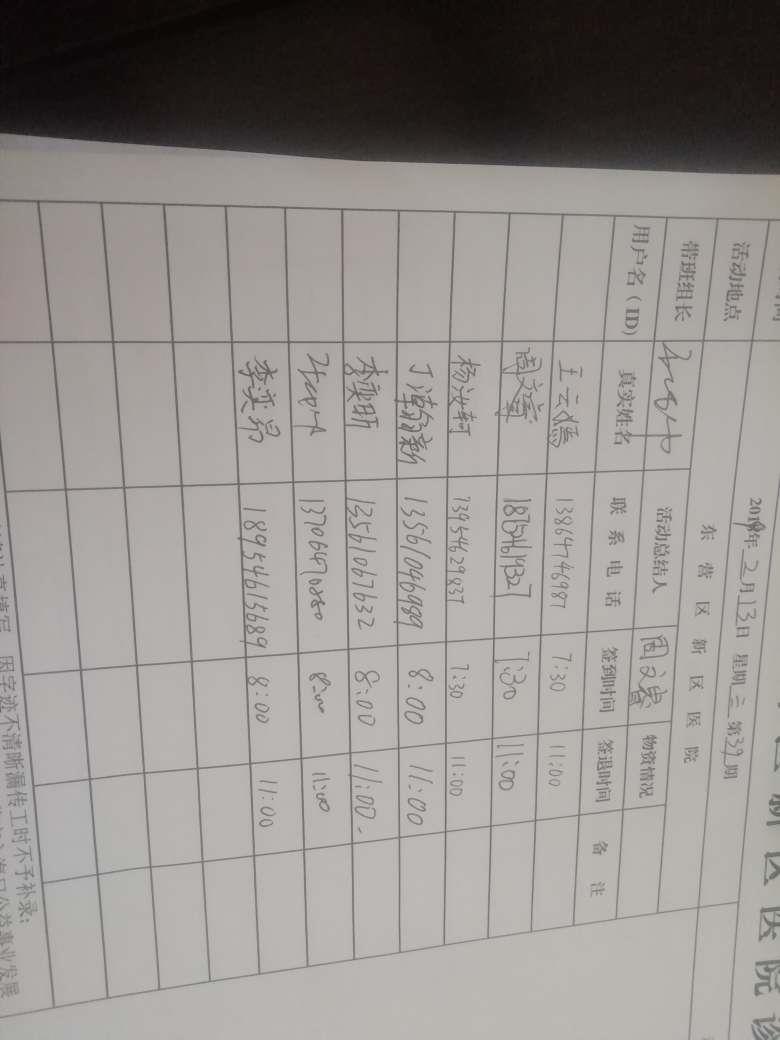 新区医院
2019年2月13日 星期三 第39期
活动地点 东营区新区医院
带班组长 活动总结人 周文睿 物资情况
用户名（ID） 真实姓名 联系电话 签到时间 签退时间 备注
王云 13864746987 7:30 11:00
周文睿 18754619327 7:30 11:00
杨汝轲 13954629837 7:30 11:00
丁潇新 13561046989 8:00 11:00
李奕昕 13561067632 8:00 11:00.
13706470280 8:00 11:00
李奕昂 18954615689 8:00 11:00
认真填写，因字迹不清晰漏传工时不予补录；
公益事业发展